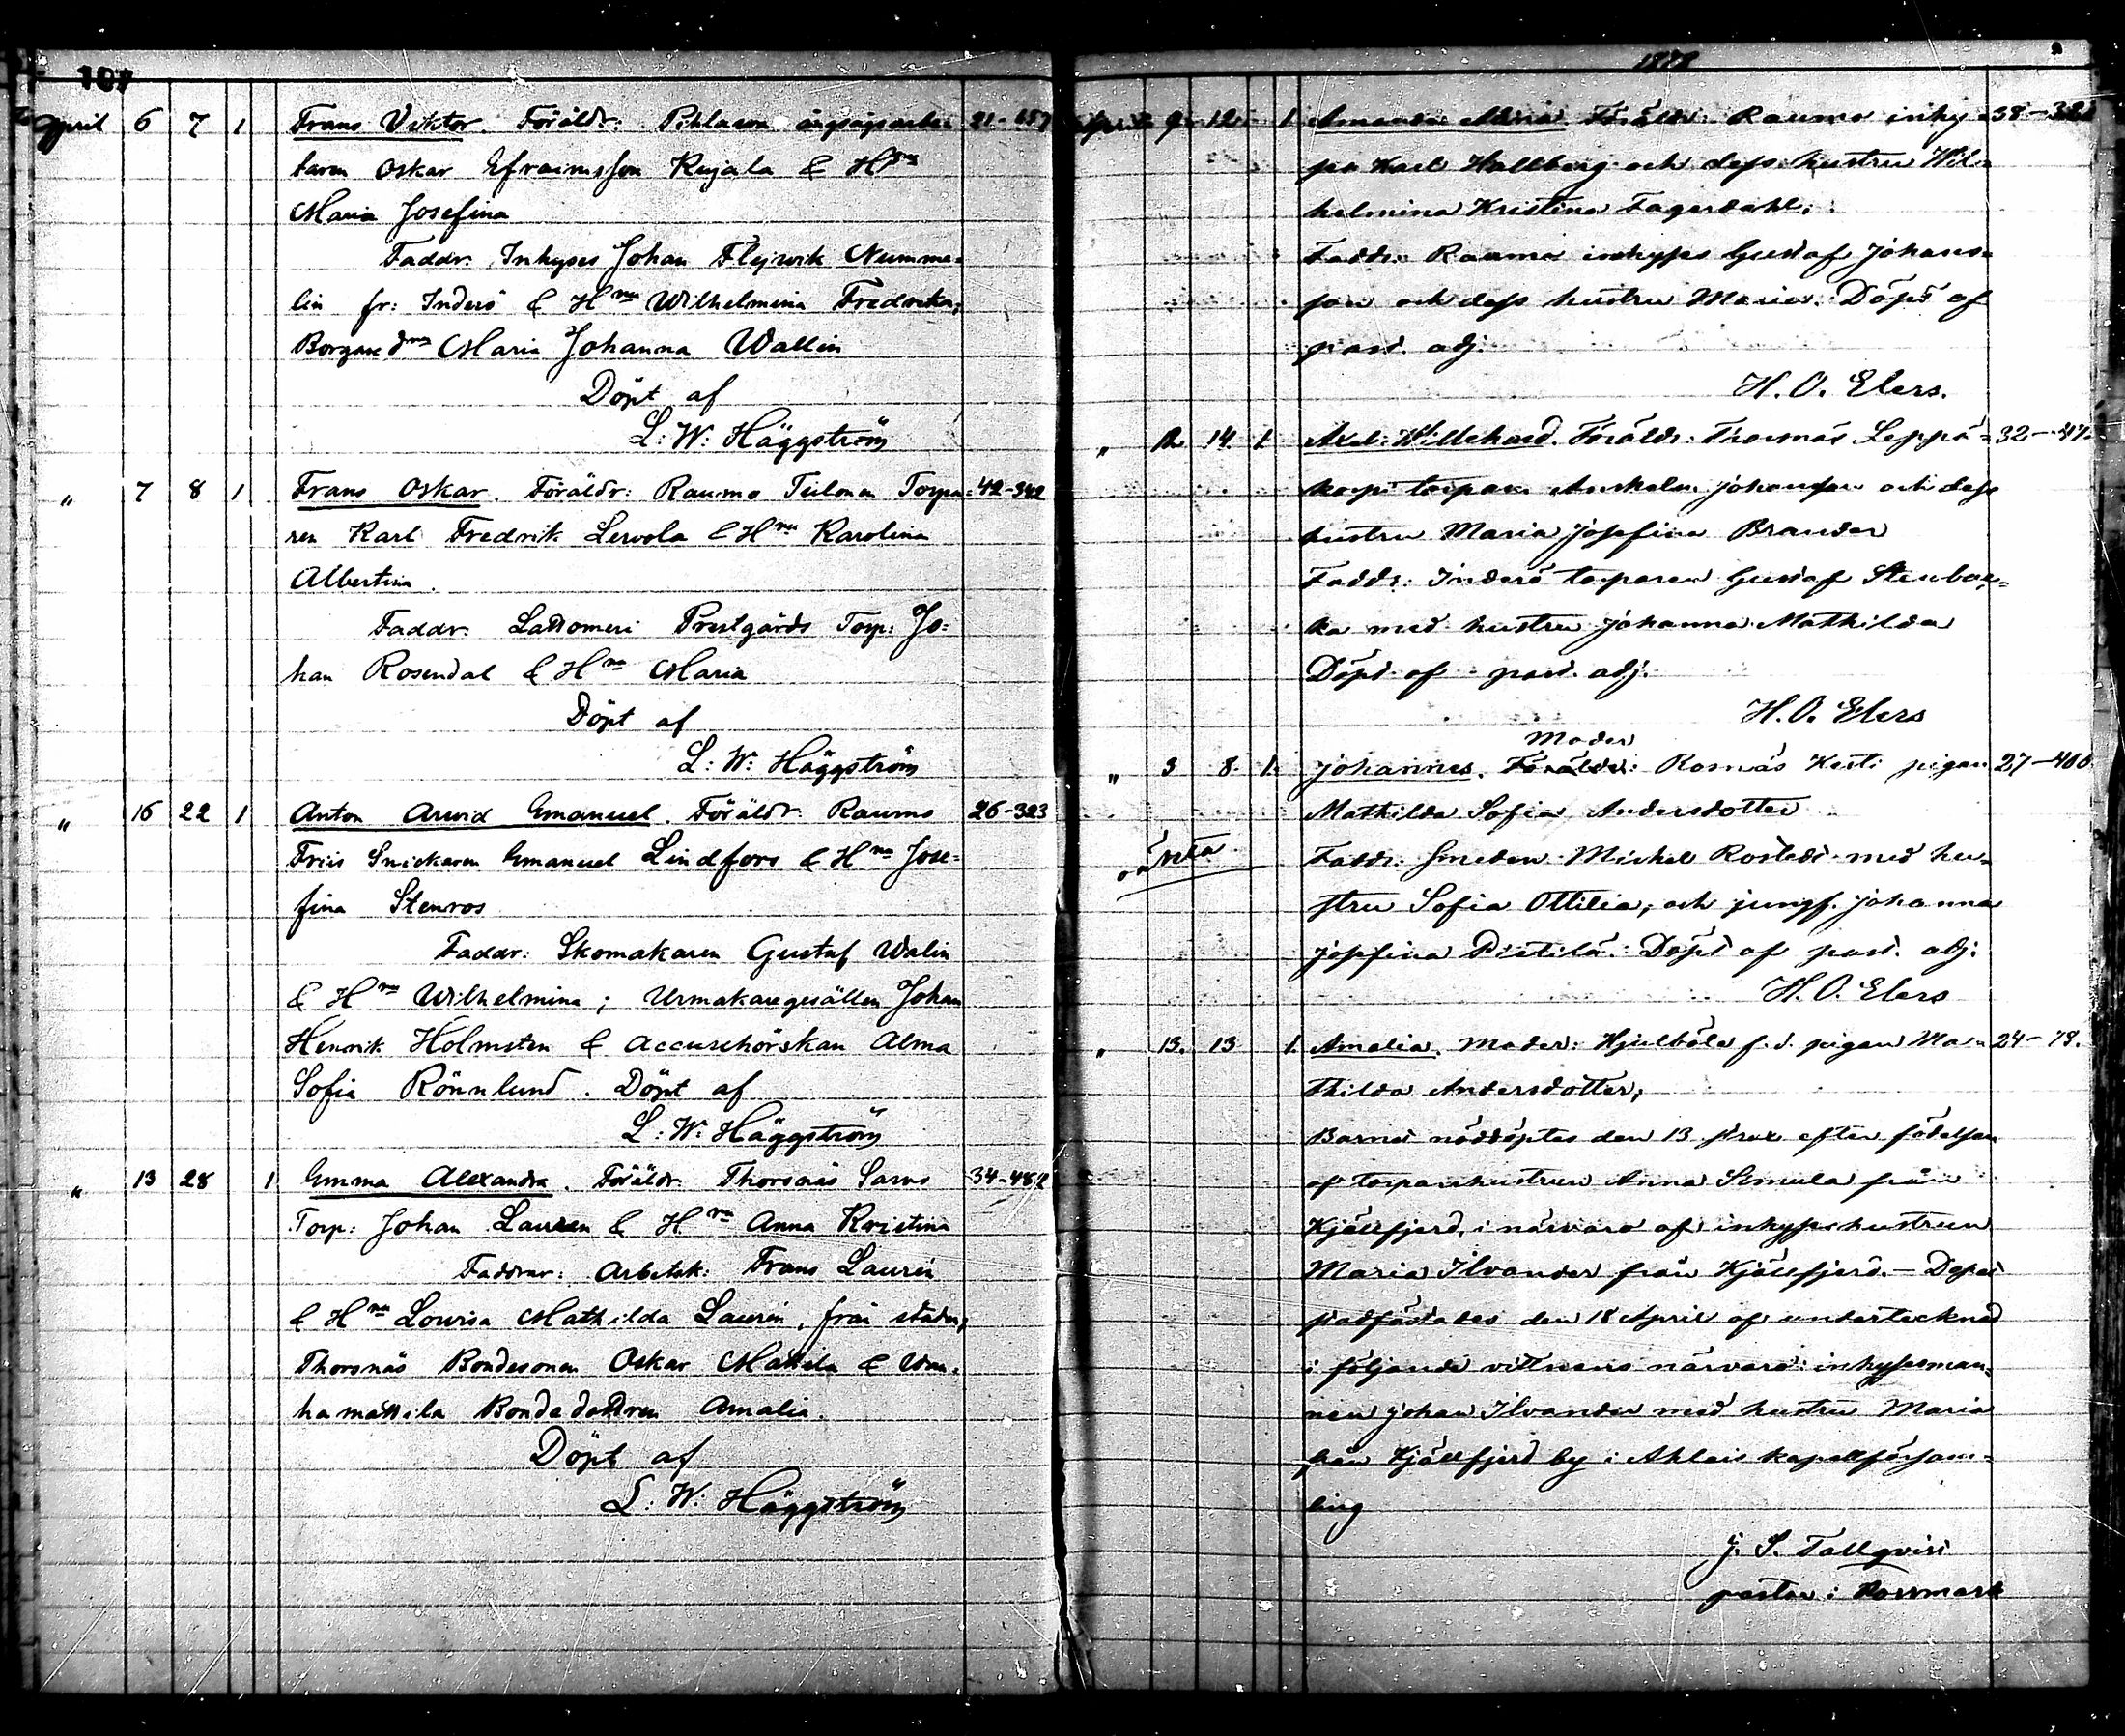 197
April 6 7 1 Frans Viktor. Föräldr: Pihlava ångsågsarbe= 21-157
taren Oskar Efraimsson Kujala & H:ru
Maria Josefina
Faddr. Inhyses Johan Flejwik Numme=
lin fr: Inderö & H:ru Wilhelmina Fredrika,
Borgare d:rn Maria Johanna Wallin
Döpt af
L: W: Häggström
" 7 8 1 Frans Oskar. Föräldr: Raumo Tiilona Torpa= 42-342
ren Karl Fredrik Lervola & H:ru Karolina
Albertina.
Faddr. Lattomeri Prestgårds Torp: Jo=
han Rosendal & H:ru Maria
Döpt af
L: W: Häggström
" 16 22 1 Anton Arvid Emanuel. Föräldr: Raumo 26-323
Friis Snickaren Emanuel Lindfors & H:ru Jose=
fina Stenros
Faddr: Skomakaren Gustaf Walin
& H:ru Wilhelmina; Urmakaregesällen Johan
Henrik Holmsten & Accuschörskan Alma
Sofia Rönnlund. Döpt af
L: W: Häggström
" 13 28 1 Emma Alexandra. Föräldr. Thorsnäs Sarvs 34-482
Torp: Johan Lauren & H:ru Anna Kristina
Faddrar: Arbetsk: Frans Laurén
& H:ru Lovisa Mathilda Laurén, från staden,
Thorsnäs Bondesonen Oskar Mattila & Wan=
hamattila Bondedottren Amalia.
Döpt af
L: W: Häggström
1878
April 9. 12. 1. Amanda Maria. Föräldr: Raumo inhy= 38-382
ses Karl Hallberg och dess hustru Wil=
helmina Kristina Fagerdahl;
Faddr: Raumo inhyses Gustaf Johans=
son och dess hustru Maria. Döpt af
past. adj.
H. O. Elers.
" 12. 14. 1. Axel Willehard. Föräldr: Thorsnäs Leppä= 32-47.
korpi torpare Anshelm Johansson och dess
hustru Maria Josefina Brander
Faddr: Inderö torparen Gustaf Stenbac=
ka med hustru Johanna Mathilda
Döpt af past. adj.
H. O. Elers
Moder
" 3 8. 1. Johannes. Föräldr: Rosnäs Kesti pigan 27-400.
Mathilda Sofia Andersdotter
oäkta
Faddr: Smeden Mickel Rostedt med hu=
stru Sofia Ottilia; och jungf. Johanna
Josefina Pietilä. Döpt af past. adj.
H. O. Elers
" 13. 13 1. Amalia. Moder: Hjulböle f.d. pigan Ma= 24-78.
thilda Andersdotter;
Barnet nöddöptes den 13 strax efter födelsen
af torparehustrun Anna Semula från
Kjöllfjerd, i närvaro af inhyseshustrun
Maria Ilvander från Kjöllfjerd. — Dopet
stadfästades den 18 April af undertecknad
i följande vittnens närvaro: inhysesman=
nen Johan Ilvander med hustru Maria
från Kjöllfjerd by i Ahlais kapellförsam=
ling
J. S. Tallqvist
pastor i Norrmark